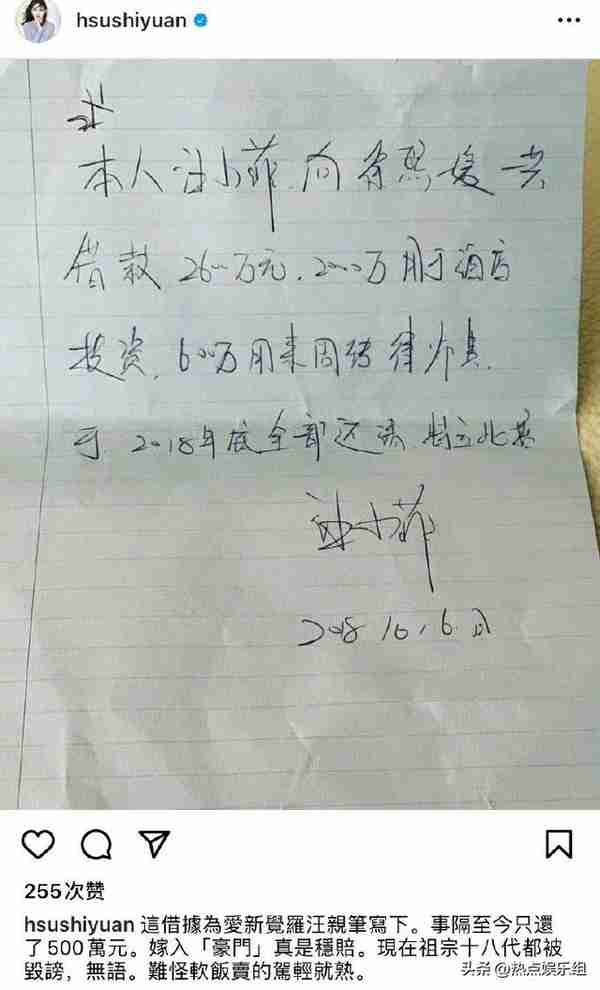 hsushiyuan
本人汪小菲,向徐熙媛共
借款2600万元,2000万用于酒店
投资,600万用来周转律师费,
于2018年底全部还清,特立此
汪小菲
2018 10,6日
255次赞
hsushiyuan 這借據為愛新覺羅汪親筆寫下。事隔至今只還
了500萬元。嫁入「豪門」真是穩賠。現在祖宗十八代都被
毀謗，無語。難怪軟飯賣的駕輕就熟。
头条 @热点娱乐组